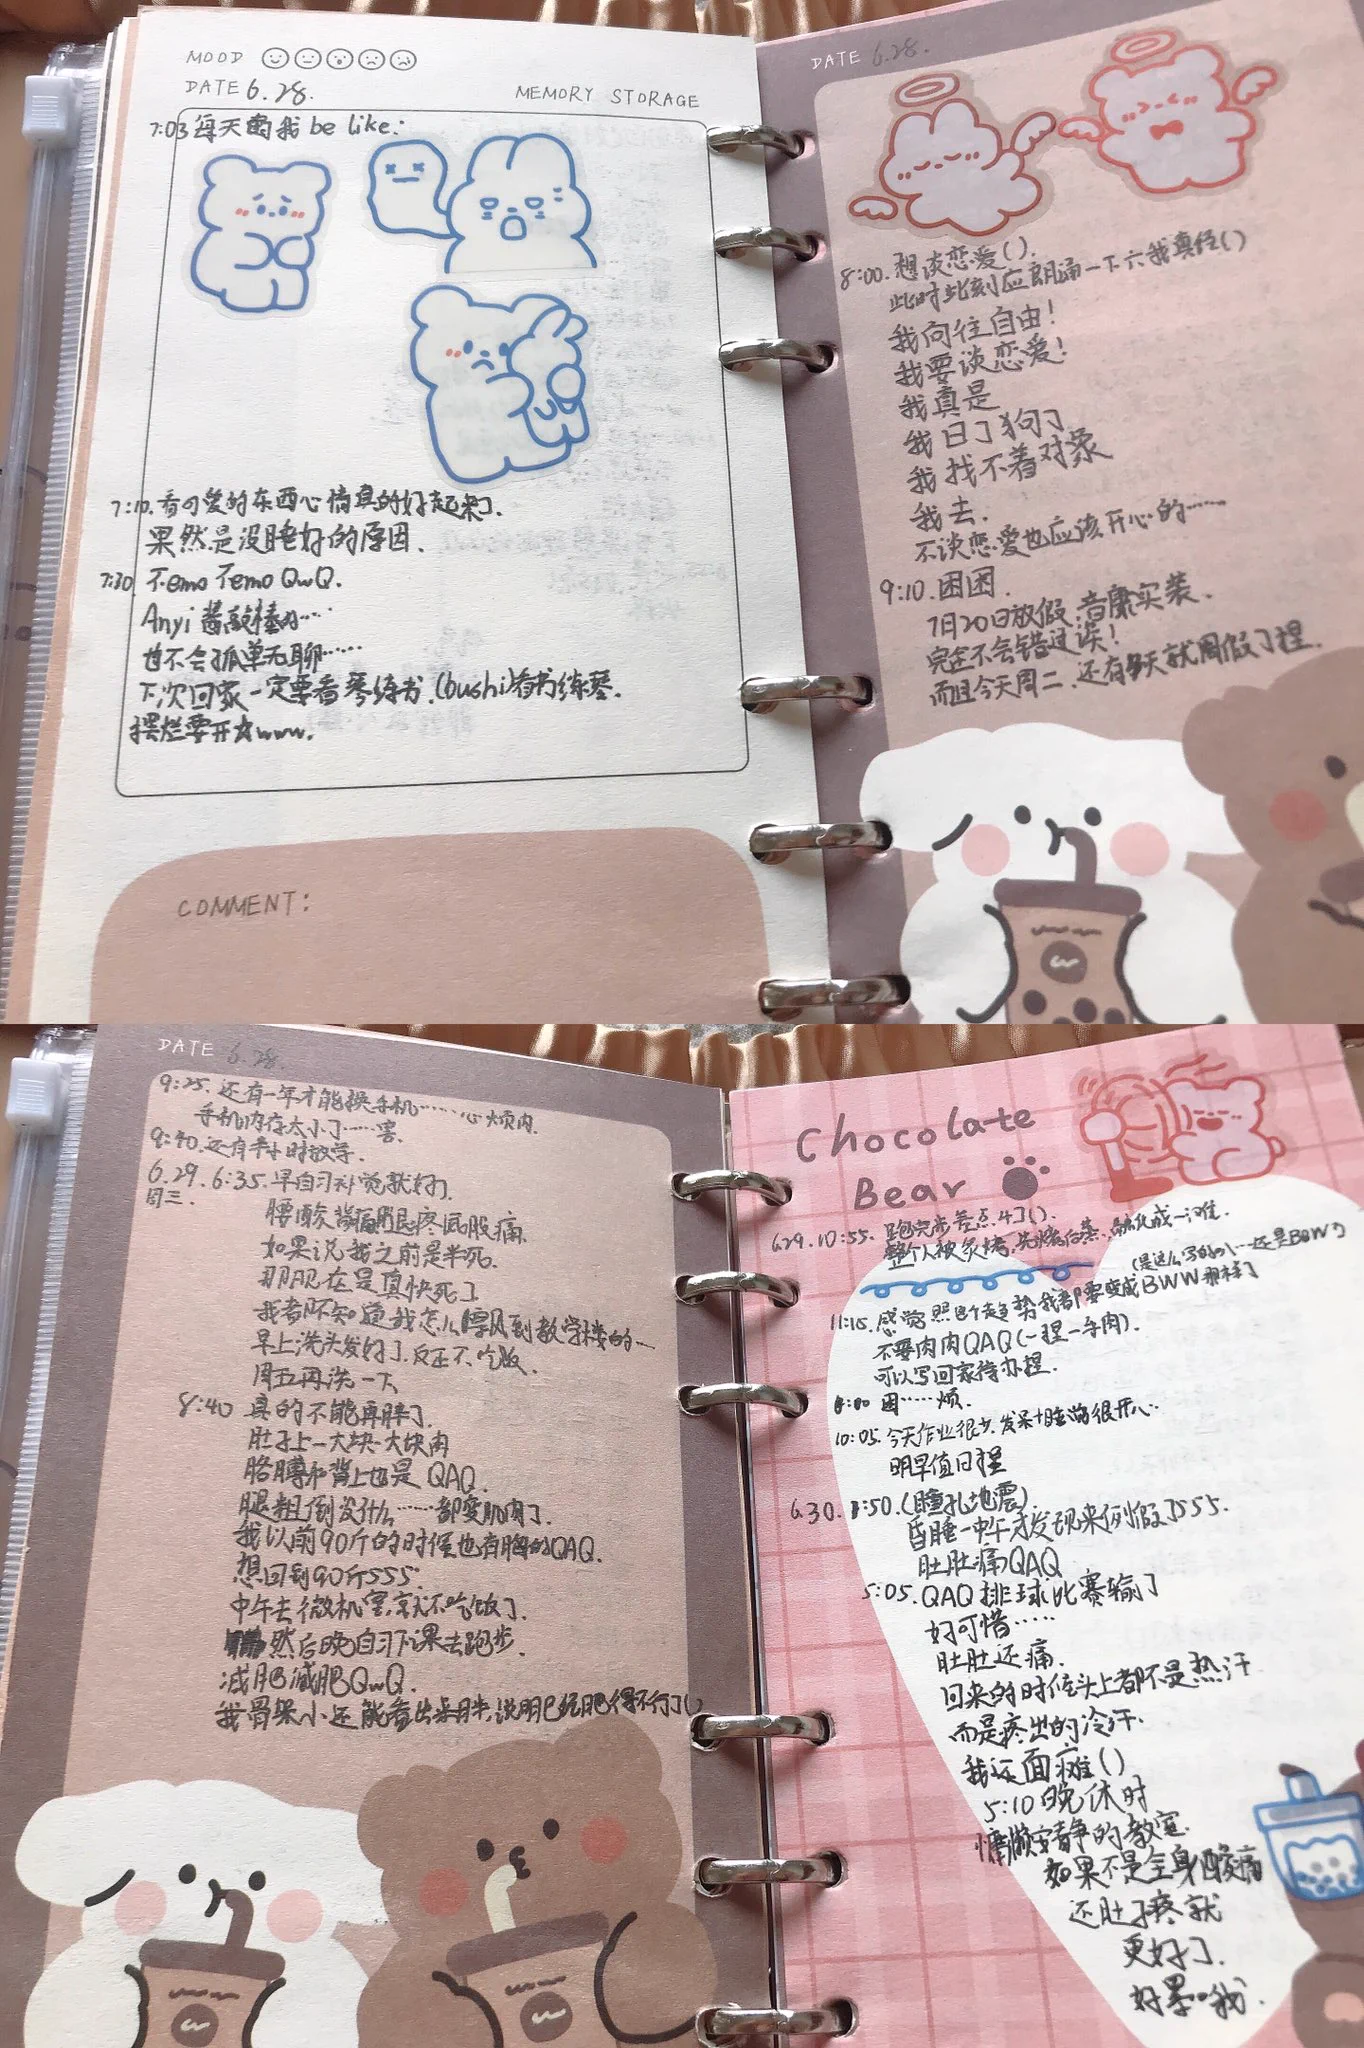 MOOD
DATE 6.28.
MEMORY STORAGE
7:03 每天的我 be like:
7:10. 看可爱的东西心情真的好起来了.
果然是没睡好的原因.
7:30 不emo不emo QwQ.
Anyi 酱敲棒的……
也不会孤单无聊……
下次回家一定要看琴练书.(bushi)看书练琴.
摆烂要开☆www.
COMMENT:
DATE 6.28.
8:00. 想谈恋爱().
此时此刻应朗诵一下六我真经()
我向往自由!
我要谈恋爱!
我真是
我日了狗了
我找不着对象
我去.
不谈恋爱也应该开心的……
9:10. 困困.
7月20日放假,音魔实装.
完全不会错过误!
而且今天周二,还有 天就周假了捏.
DATE 6.28.
9:25. 还有一年才能换手机……心烦内.
手机内存太小了……害.
9:40. 还有半小时放学.
6.29. 6:35. 早自习补觉就好了.
周三.
腰酸背痛腿疼屁股痛.
如果说我之前是半死.
那现在是真快死了
我都不知道我怎么飘到教学楼的…
早上洗头发好了,反正不吃饭.
周五再洗一下
8:40 真的不能再胖了.
肚子上一大块一大块肉
胳膊和背上也是 QAQ.
腿粗倒没什么……都变肌肉了.
我以前90斤的时候也有胸的QAQ.
想回到90斤555.
中午去微机室,就不吃饭了.
然后晚自习下课去跑步.
减肥减肥QwQ.
我骨架小还能看出来胖,说明已经肥得不行了()
Chocolate
Bear
6.29. 10:55. 跑完步差点 了().
整个人被炙烤,先烤后蒸,融化成一滩.
(是这么写的吗…还是BBW)
11:15. 感觉照这个趋势我都要变成BWW那样了
不要肉肉QAQ(一捏一手肉).
可以写回家待办捏.
:00 困……烦.
10:05. 今天作业很少,发呆+睡觉很开心.
明早值日捏
6.30. 1:50.(瞳孔地震)
昏睡一中午才发现来例假了555.
肚肚痛QAQ
5:05. QAQ 排球比赛输了
好可惜……
肚肚还痛.
回来的时候头上都不是热汗
而是疼出的冷汗.
我还面瘫()
5:10 晚休时
慵懒安静的教室.
如果不是全身酸痛
还肚子疼就
更好了.
好累 我.